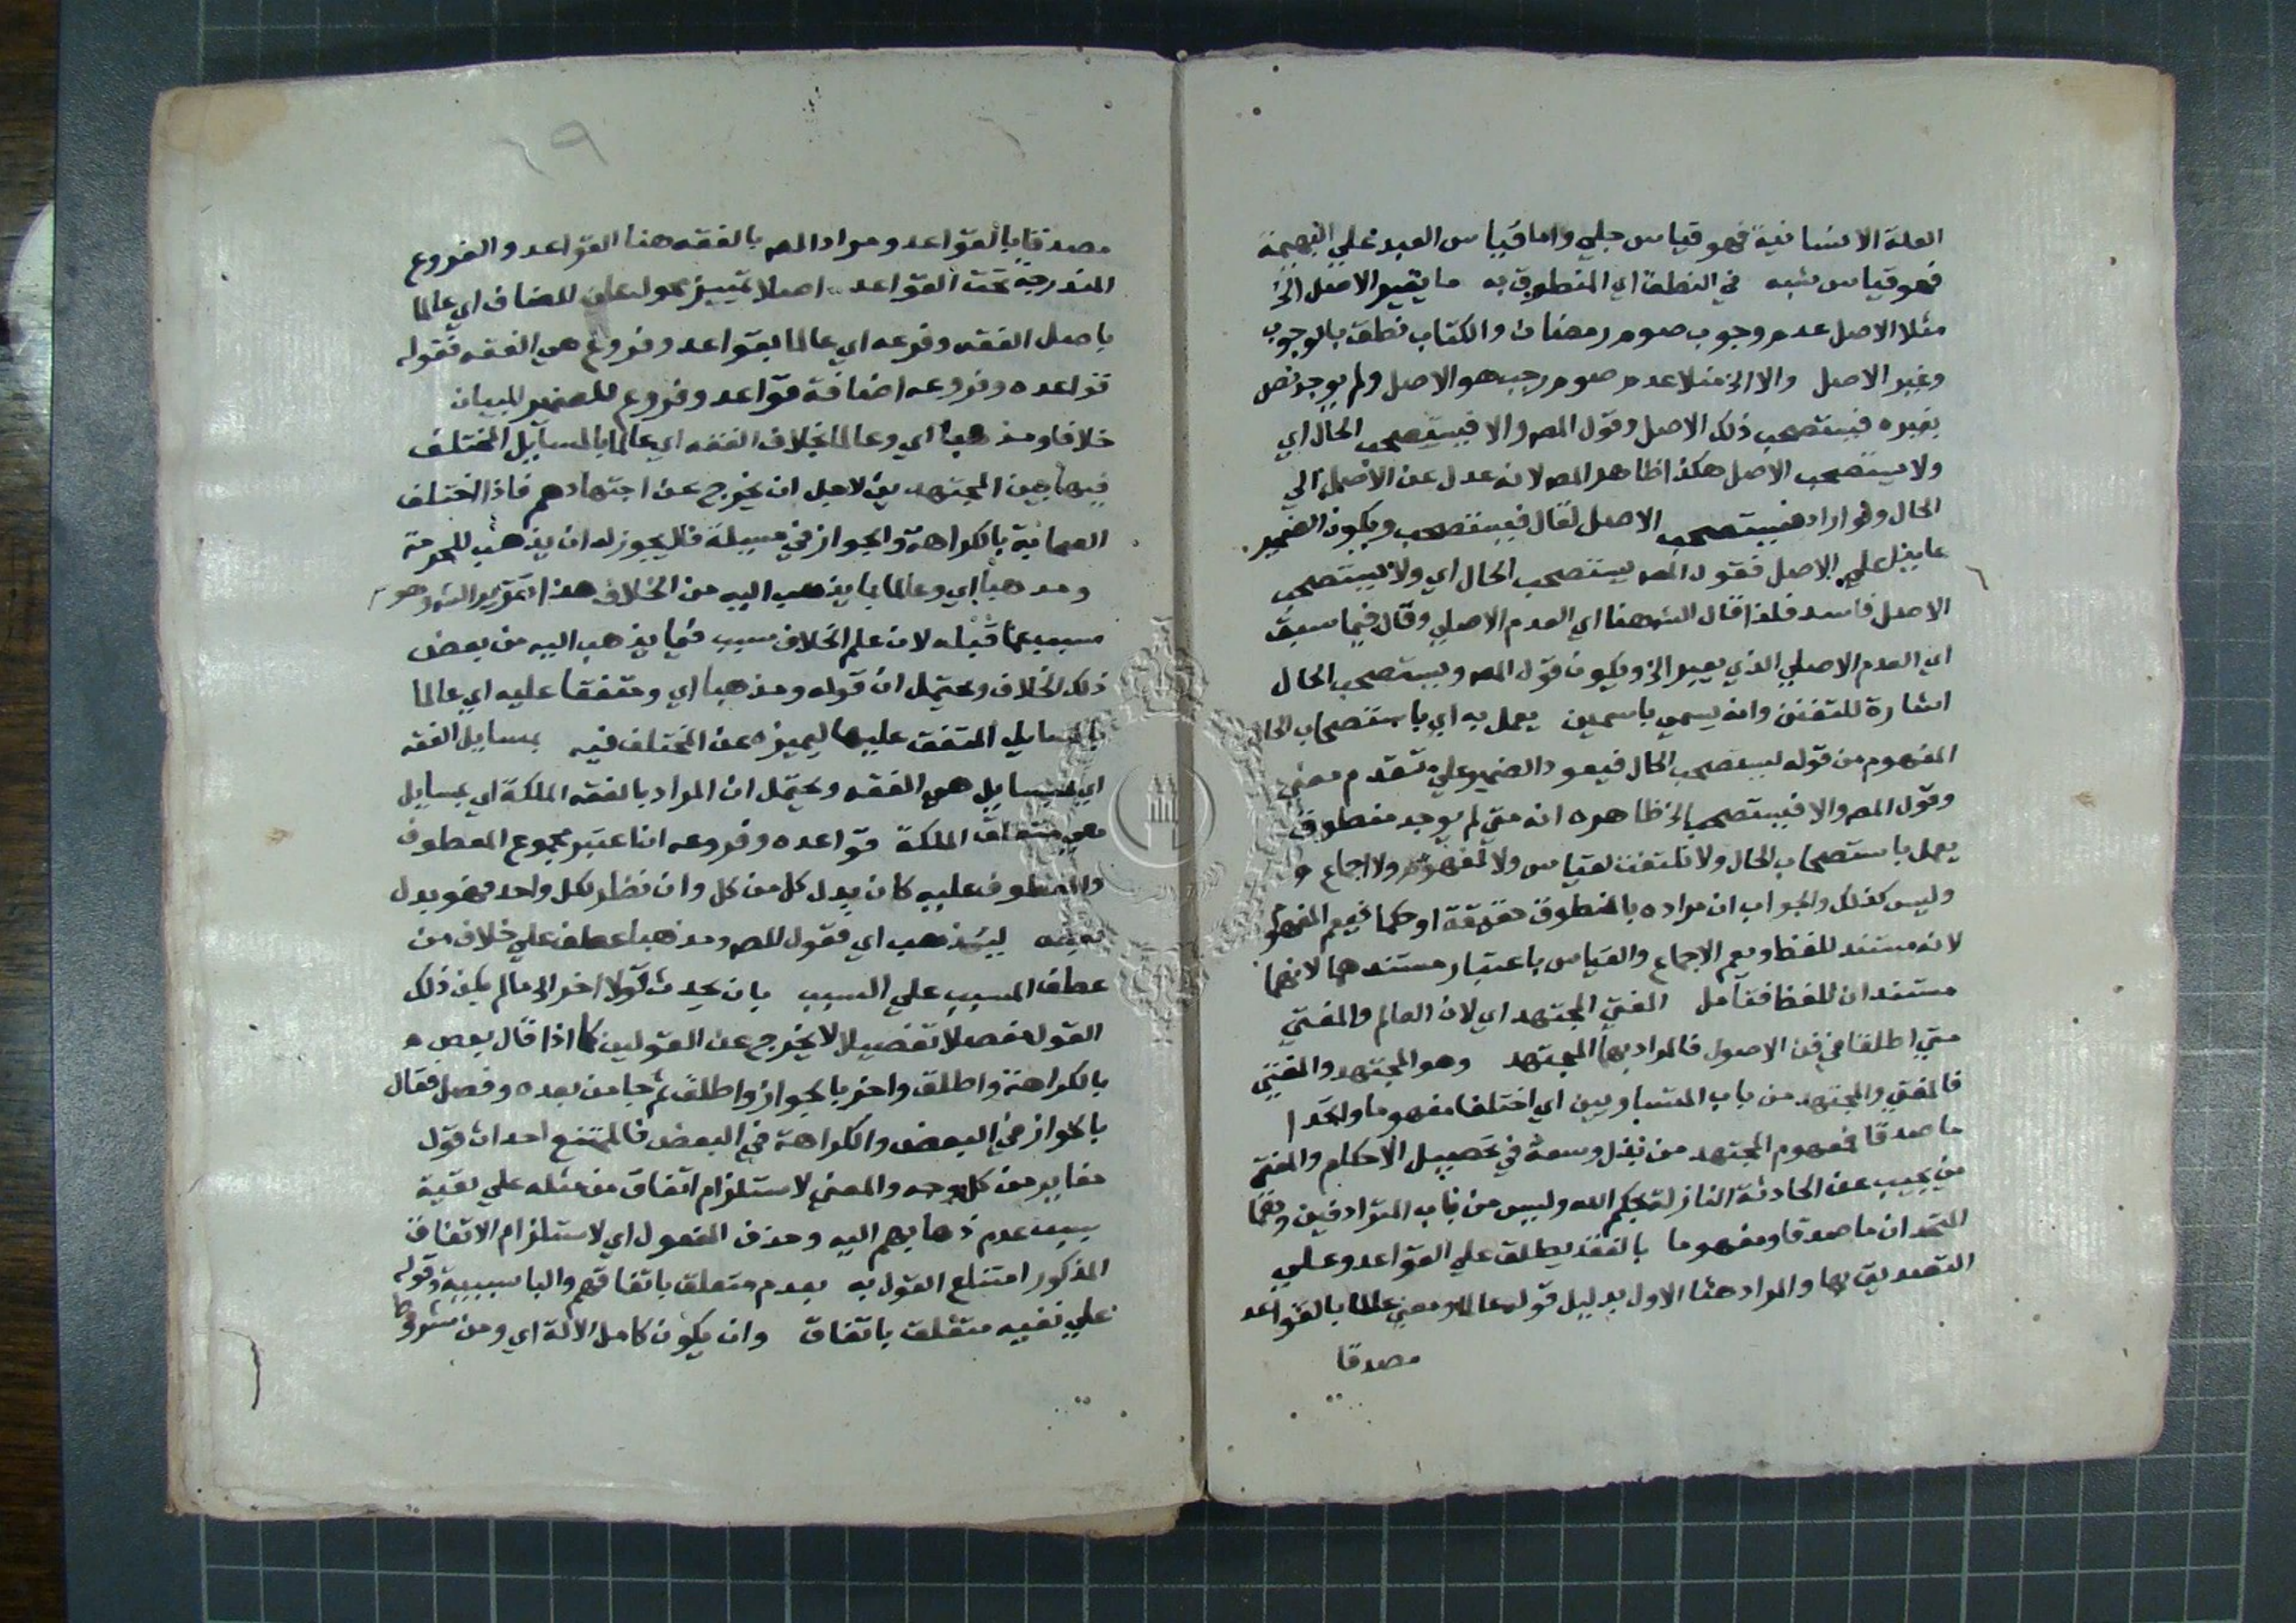 العلة الانسانية فهو قياس جلي واما قياس العبد علي البهيمة
فهو قياس شبه في النطق اي المنطوق به ما يغير الاصل الخ
مثلا الاصل عدم وجوب صوم رمضان والكتاب نطق بالوجوب
وغير الاصل والا الخ مثلا عدم صوم رجب هو الاصل ولم يوجد نص
يغيره فيستصحب ذلك الاصل وقول المص والا فيستصحب الحال اي
ولا يستصحب الاصل هكذا ظاهر المص لانه عدل عن الاصل الي
الحال ولو اراد فيستصحب الاصل لقال فيستصحب ويكون الضمير
عايد علي الاصل فقول المص يستصحب الحال اي ولا يستصحب
الاصل فاسد فلذا قال الشه هنا اي العدم الاصلي وقال فيما سبق
اي العدم الاصلي الذي يعبر الخ ويكون قول المص ويستصحب الحال
اشارة للتفنن وانه يسمي باسمين يعمل به اي باستصحاب الحال
المفهوم من قوله ليستصحب الحال فيعود الضمير علي متقدم معني
وقول المص والا فيستصحب الخ ظاهره انه متي لم يوجد منطوق
يعمل باستصحاب الحال ولا تلتفت لقياس ولا لمفهوم ولا اجماع
وليس كذلك والجواب ان مراده بالمنطوق حقيقة او حكما فيعم المفهوم
لانه مستند للفظ ويعم الاجماع والقياس باعتبار مستندهما لانهما
مستندان للفظ فتأمل المفتي المجتهد اي لان العالم والمفتي
متي اطلقا في فن الاصول فالمراد بهما المجتهد وهو المجتهد والمفتي
فالمفتي والمجتهد من باب المتساويين اي اختلفا مفهوما واتحدا
ما صدقا فمفهوم المجتهد من بذل وسعه في تحصيل الاحكام والمفتي
من يجيب عن الحادثة النازلة بحكم الله وليس من باب المترادفين وهما
المتحدان ما صدقا ومفهوما بالفقه يطلق علي القواعد وعلي
التصديق بها والمراد هنا الاول بدليل قوله عالما ومعني عالما بالقواعد
مصدقا
٦٩
مصدقا بالقواعد ومراد المص بالفقه هنا القواعد والفروع
المندرجة تحت القواعد اصلا تمييز محول عن المضاف اي عالما
باصل الفقه وفرعه اي عالما بقواعد وفروع هي الفقه فقوله
قواعده وفروعه اضافة قواعد وفروع للضمير للبيان
خلافا ومذهبا اي وعالما بخلاف الفقه اي عالما بالمسايل المختلف
فيها بين المجتهدين لاجل ان يخرج عن اجتهادهم فاذا اختلف
الصحابة بالكراهة والجواز في مسيلة فلا يجوز له ان يذهب للحرمة
ومذهبا اي وعالما بما يذهب اليه من الخلاف هذا تقرير الشه وهو
مسبب عما قبله لان علم الخلاف سبب فيما يذهب اليه من بعض
ذلك الخلاف ويحتمل ان قوله ومذهبا اي ومتفقا عليه اي عالما
بالمسايل المتفق عليها ليميزه عن المختلف فيه بمسايل الفقه
اي بمسايل هي الفقه ويحتمل ان المراد بالفقه الملكة اي بمسايل
هي متعلق الملكة قواعده وفروعه ان اعتبر مجموع المعطوف
والمعطوف عليه كان بدل كل من كل وان نظر لكل واحد فهو بدل
بعض ليذهب اي فقول المص ومذهبا عطف علي خلاف من
عطف المسبب علي السبب بان يحدث قولا اخر الخ مالم يكن ذلك
القول مفصلا تفصيلا لا يخرج عن القولين كما اذا قال بعض
بالكراهة واطلق واخر بالجواز واطلق ثم جا من بعده وفصل فقال
بالجواز في البعض والكراهة في البعض فالممتنع احداث قول
مغاير من كل وجه والمعني لاستلزام اتفاق من مثله علي بقية
بسبب عدم ذهابهم اليه وحذف المفعول اي لاستلزام الاتفاق
المذكور امتناع القول به بعدم متعلق باتفاقهم والبا سببية وقوله
علي نفيه متعلق باتفاق وان يكون كامل الالة اي ومن شروط